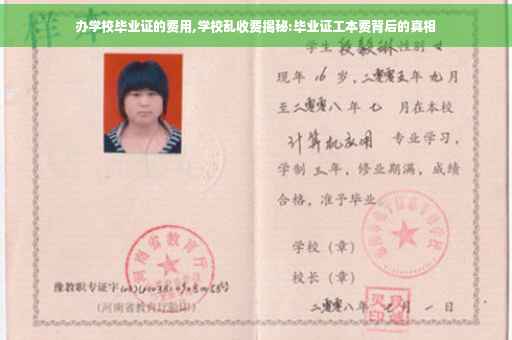 办学校毕业证的费用,学校乱收费揭秘:毕业证工本费背后的真相
样本
学生 性别 女
现年 16 岁,二零零五年 九月
至二零零八年 七 月在本校
计算机应用 专业学习,
学制 三年,修业期满,成绩
合格,准予毕业
学校(章)
校长(章)
二零零八年 七月 一 日
河南省教育厅
豫教职专证字
(河南省教育厅验印)